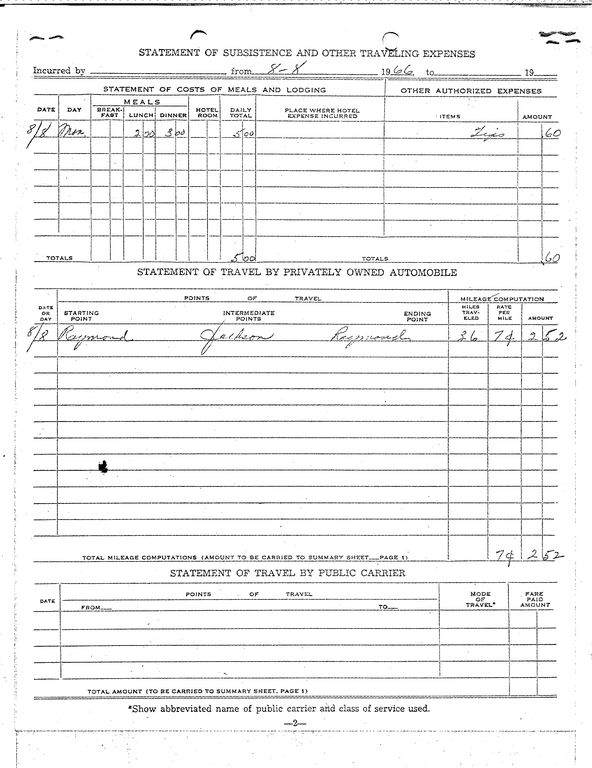 STATEMENT OF SUBSISTENCE AND OTHER TRAVELING EXPENSES
Incurred by from 8-8 1966 to 19
STATEMENT OF COSTS OF MEALS AND LODGING OTHER AUTHORIZED EXPENSES
DATE DAY MEALS BREAK-FAST LUNCH DINNER HOTEL ROOM DAILY TOTAL PLACE WHERE HOTEL EXPENSE INCURRED ITEMS AMOUNT
8/8 Mon 2 00 3 00 5 00 Tips .60
TOTALS 5 00 TOTALS .60
STATEMENT OF TRAVEL BY PRIVATELY OWNED AUTOMOBILE
POINTS OF TRAVEL MILEAGE COMPUTATION
DATE OR DAY STARTING POINT INTERMEDIATE POINTS ENDING POINT MILES TRAV-ELED RATE PER MILE AMOUNT
8/8 Raymond Jackson Raymond 36 7¢ 2 52
TOTAL MILEAGE COMPUTATIONS (AMOUNT TO BE CARRIED TO SUMMARY SHEET PAGE 1) 7¢ 2 52
STATEMENT OF TRAVEL BY PUBLIC CARRIER
DATE POINTS OF TRAVEL MODE OF TRAVEL* FARE PAID AMOUNT
FROM TO
TOTAL AMOUNT (TO BE CARRIED TO SUMMARY SHEET, PAGE 1)
*Show abbreviated name of public carrier and class of service used.
—2—